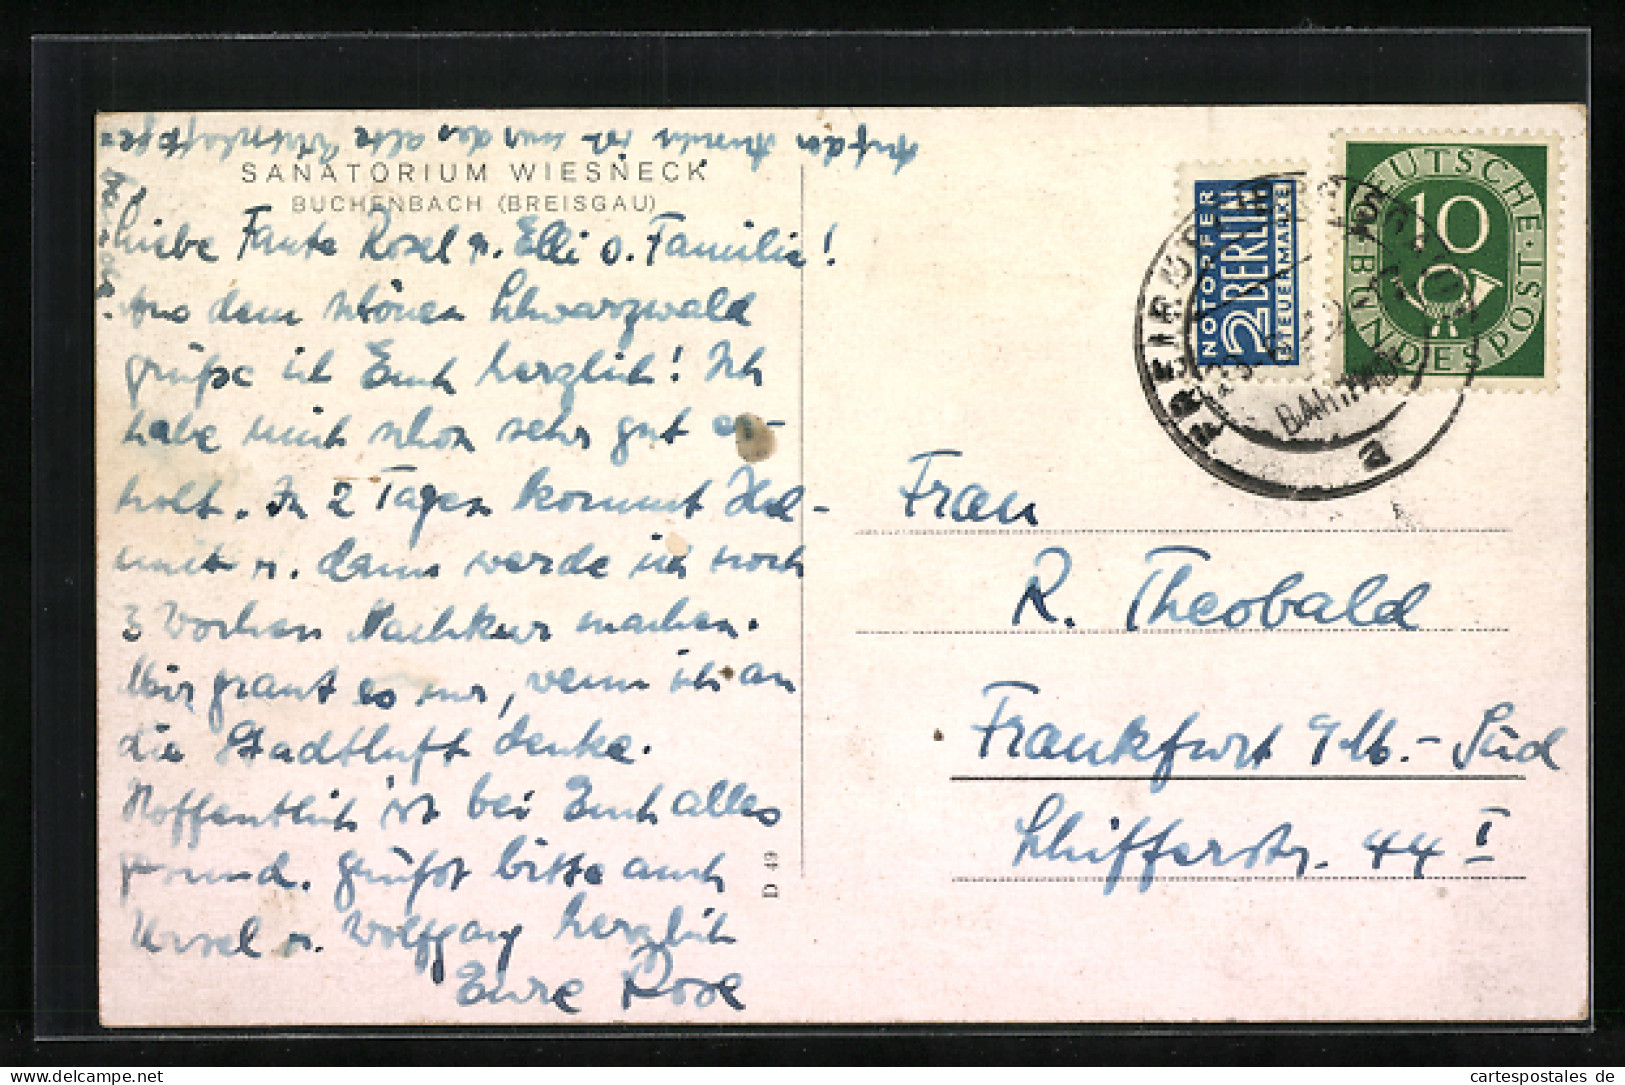 SANATORIUM WIESNECK
BUCHENBACH (BREISGAU)
Liebe Tante Rosel u. Elli u. Familie!
Aus dem schönen Schwarzwald
grüße ich Euch herzlich! Ich
habe mich schon sehr gut er-
holt. In 2 Tagen kommt Hel-
mut u. dann werde ich noch
3 Wochen Nachkur machen.
Mir graut es nur, wenn ich an
die Stadtluft denke.
Hoffentlich ist bei Euch alles
gesund. Grüßt bitte auch
Ursel u. Wolfgang herzlich
Eure Rose
D 49
NOTOPFER
2 BERLIN
STEUERMARKE
DEUTSCHE BUNDESPOST
10
FREIBURG
BAHNHOF
a
Frau
R. Theobald
Frankfurt a/M.-Süd
Schifferstr. 44 I
cartespostales de